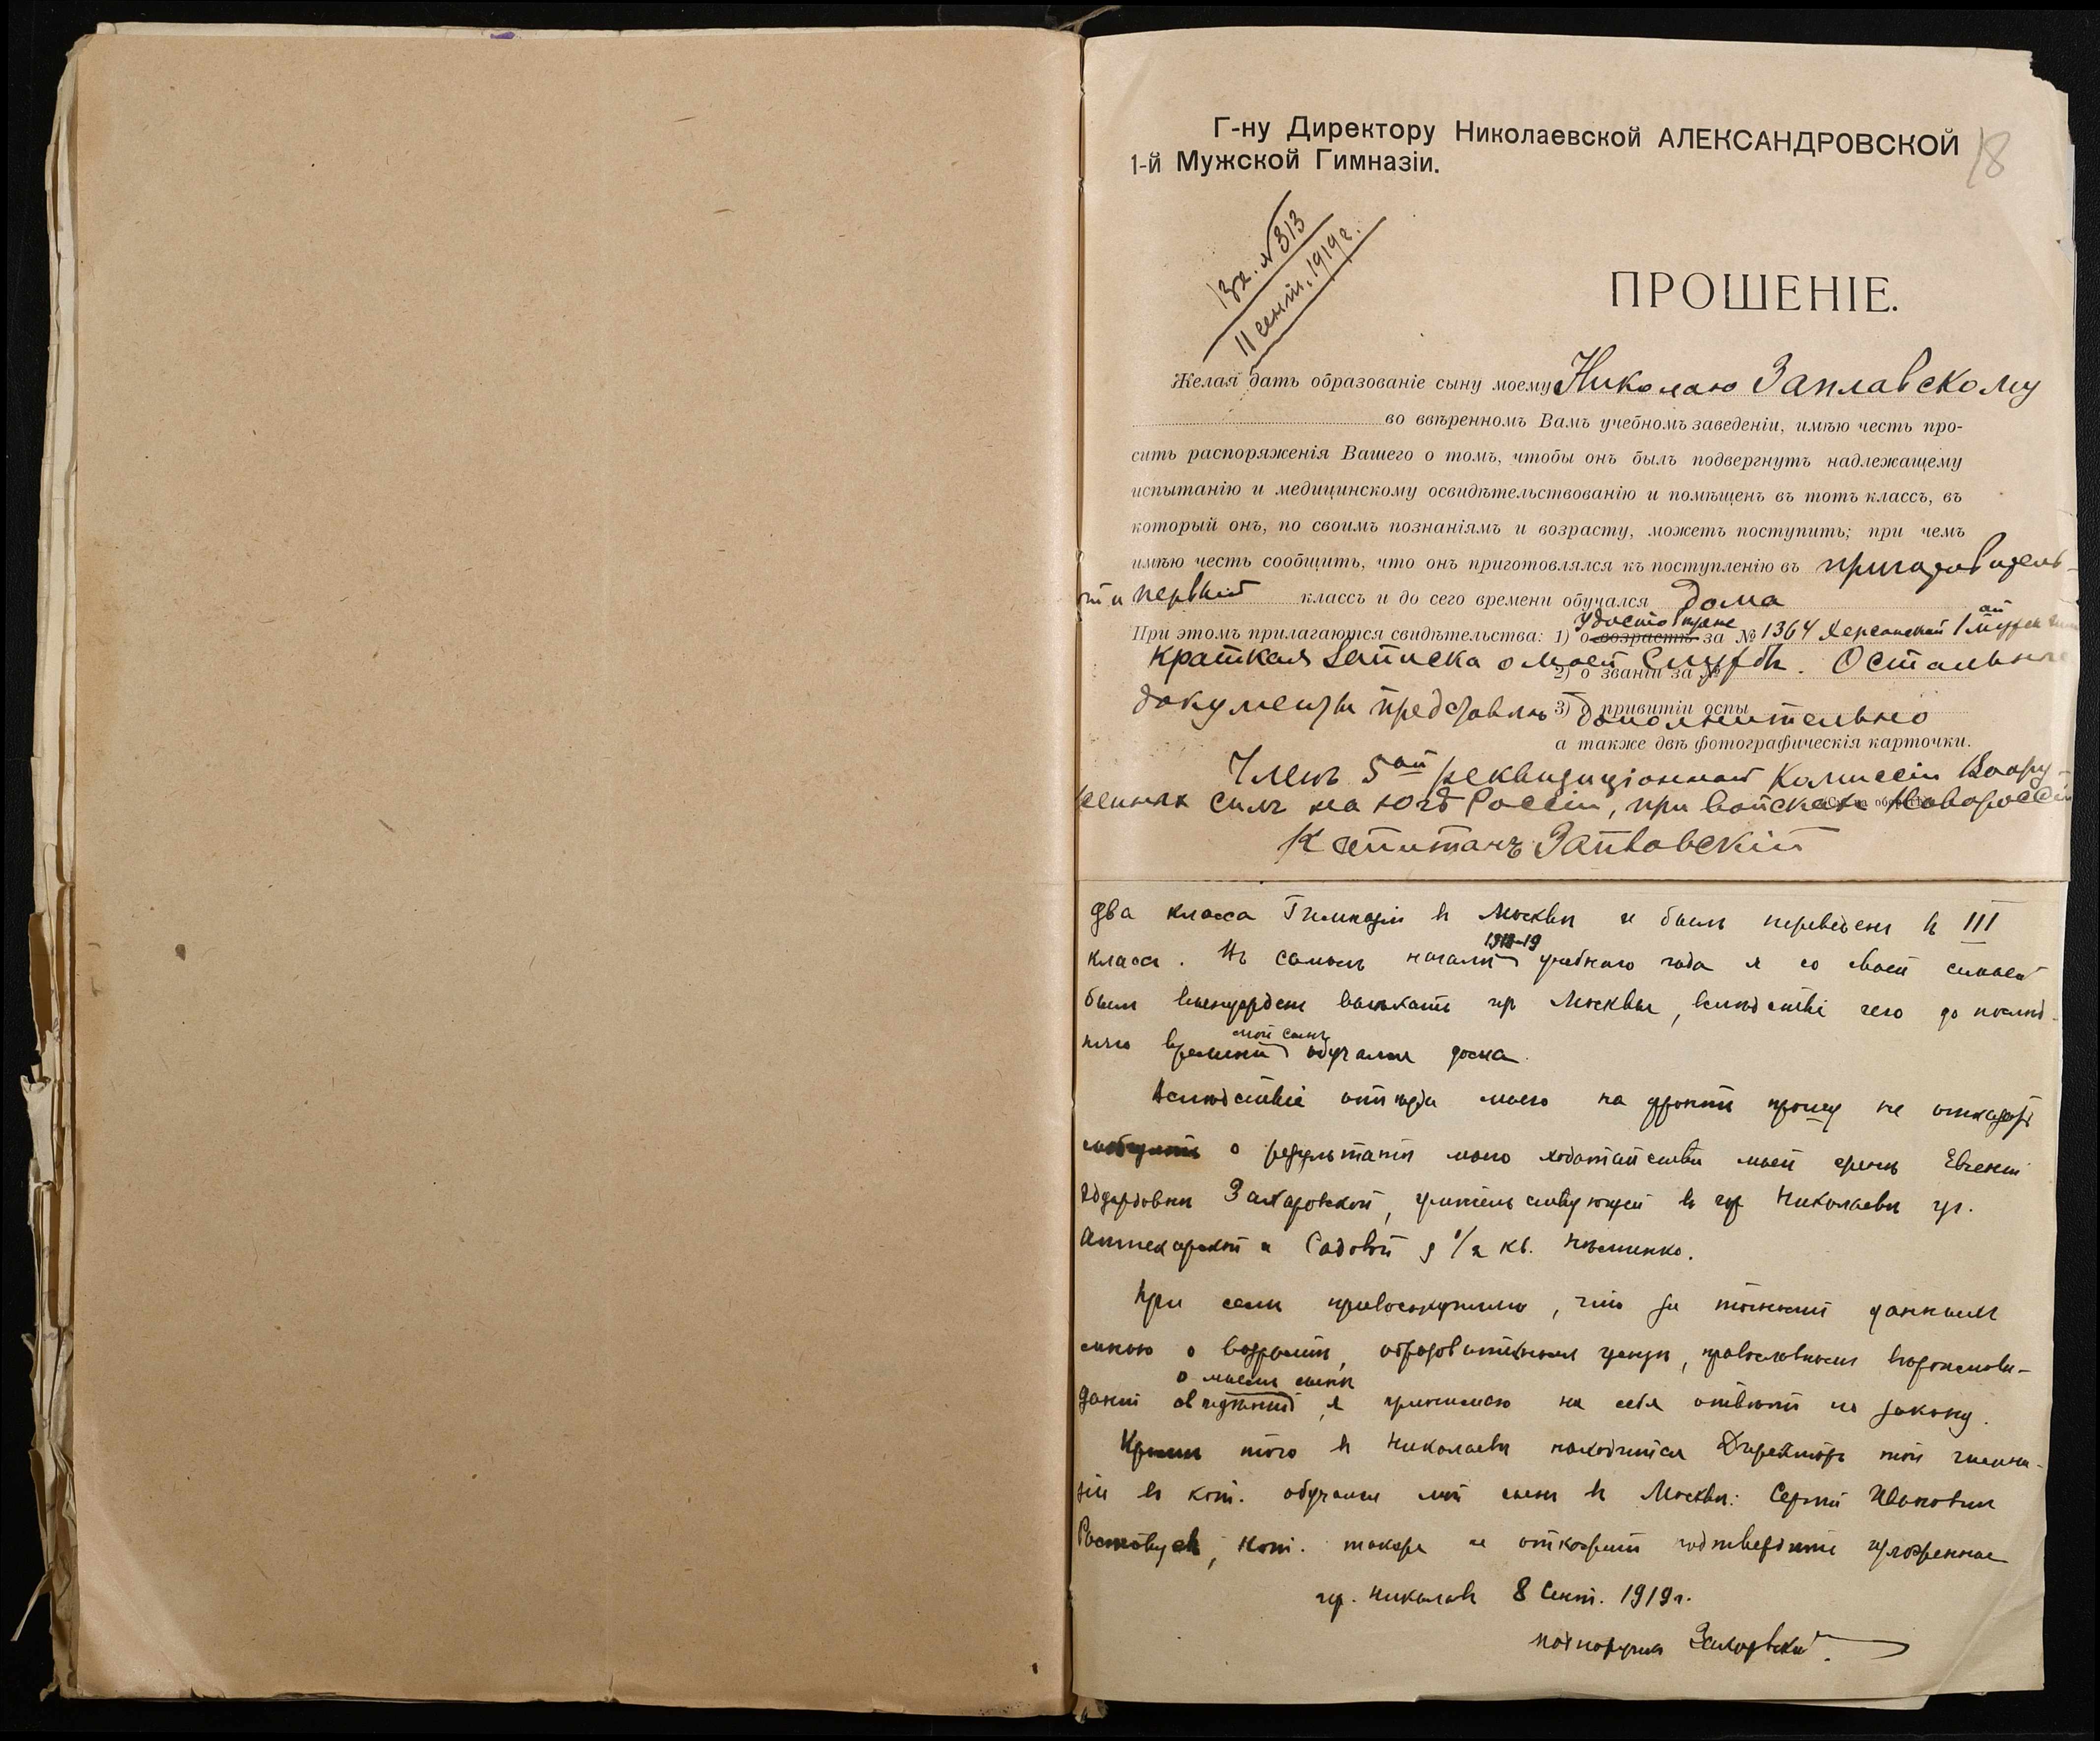 Г-ну Директору Николаевской АЛЕКСАНДРОВСКОЙ
18
1-й Мужской Гимназіи.
Вх. № 313
11 сент. 1919 г.
ПРОШЕНІЕ.
Желая дать образованіе сыну моему Николаю Заплавскому
во ввѣренномъ Вамъ учебномъ заведеніи, имѣю честь про-
сить распоряженія Вашего о томъ, чтобы онъ былъ подвергнутъ надлежащему
испытанію и медицинскому освидѣтельствованію и помѣщенъ въ тотъ классъ, въ
который онъ, по своимъ познаніямъ и возрасту, можетъ поступить; при чемъ
имѣю честь сообщить, что онъ приготовлялся къ поступленію въ приготовитель-
первый классъ и до сего времени обучался дома
При этомъ прилагаются свидѣтельства: 1) о возрастѣ за № 1364 Херсонской 1ой
Краткая Записка о моей Службѣ. Остальные
2) о званіи за №
документы представлю дополнительно
3) о привитіи оспы
а также двѣ фотографическія карточки.
Членъ 5ой реквизиціонной Комиссіи Воору-
женныхъ силъ на Югѣ Россіи, при войскахъ Новороссіи
Капитанъ
два класса Гимназіи в Москвѣ и был переведен в III
класс. Въ самом началѣ 1918-19 учебного года я со своей семьей
был вынужден выѣхать из Москвы, вслѣдствіе чего до послѣд-
няго времени мой сынъ обучался дома.
Вслѣдствіе отъѣзда моего на фронт прошу не отказать
сообщить о результатѣ моего ходатайства моей женѣ Евгеніи
в гор Николаевѣ уг.
Аптекарской и Садовой 9 1/2 кв.
При сем присовокупляю, что за точность данных
мною о возрастѣ, образовательном цензѣ, православном вѣроисповѣ-
даніи о моем сынѣ свѣдѣній, я принимаю на себя отвѣт по закону.
Кромѣ того в Николаевѣ находится Директор той гимна-
зіи в кот. обучался мой сын в Москвѣ: Сергѣй Иванович
кот. также не откажет подтвердить изложенное
гор. Николаев 8 Сент. 1919 г.